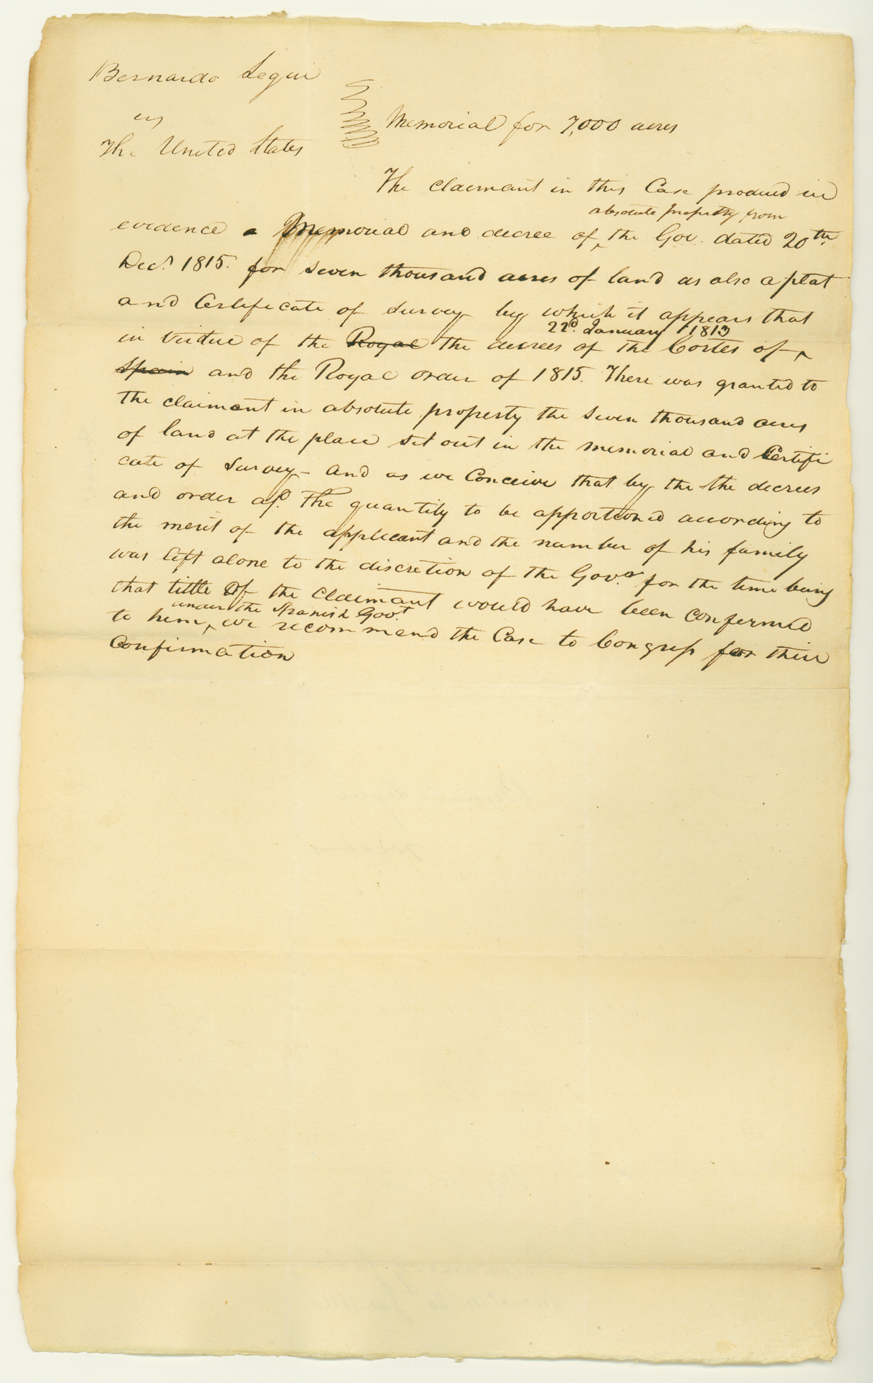 Bernardo Segui
vs
The United States
Memorial for 7,000 acres
The claimant in this Case produced in
absolute property from
evidence a Memorial and decree of ‸ the Gov. dated 20th
Decr 1815. for seven thousand acres of land as also a plat
and Certificate of survey by which it appears that
22d January 1813
in virtue of the Royal the decrees of the Cortes of ‸
Spain and the Royal order of 1815. There was granted to
the claimant in absolute property the seven thousand acres
of land at the place set out in the memorial and Certifi
cate of survey – and as we Conceive that by the the decrees
and order afd. The quantity to be apportioned according to
the merit of the applicant and the number of his family
was left alone to the discretion of the Govr for the time being
that tittle of the claimant would have been confirmed
under the Spanish Govt
to him ‸ we recommend the Case to Congress for their
Confirmation